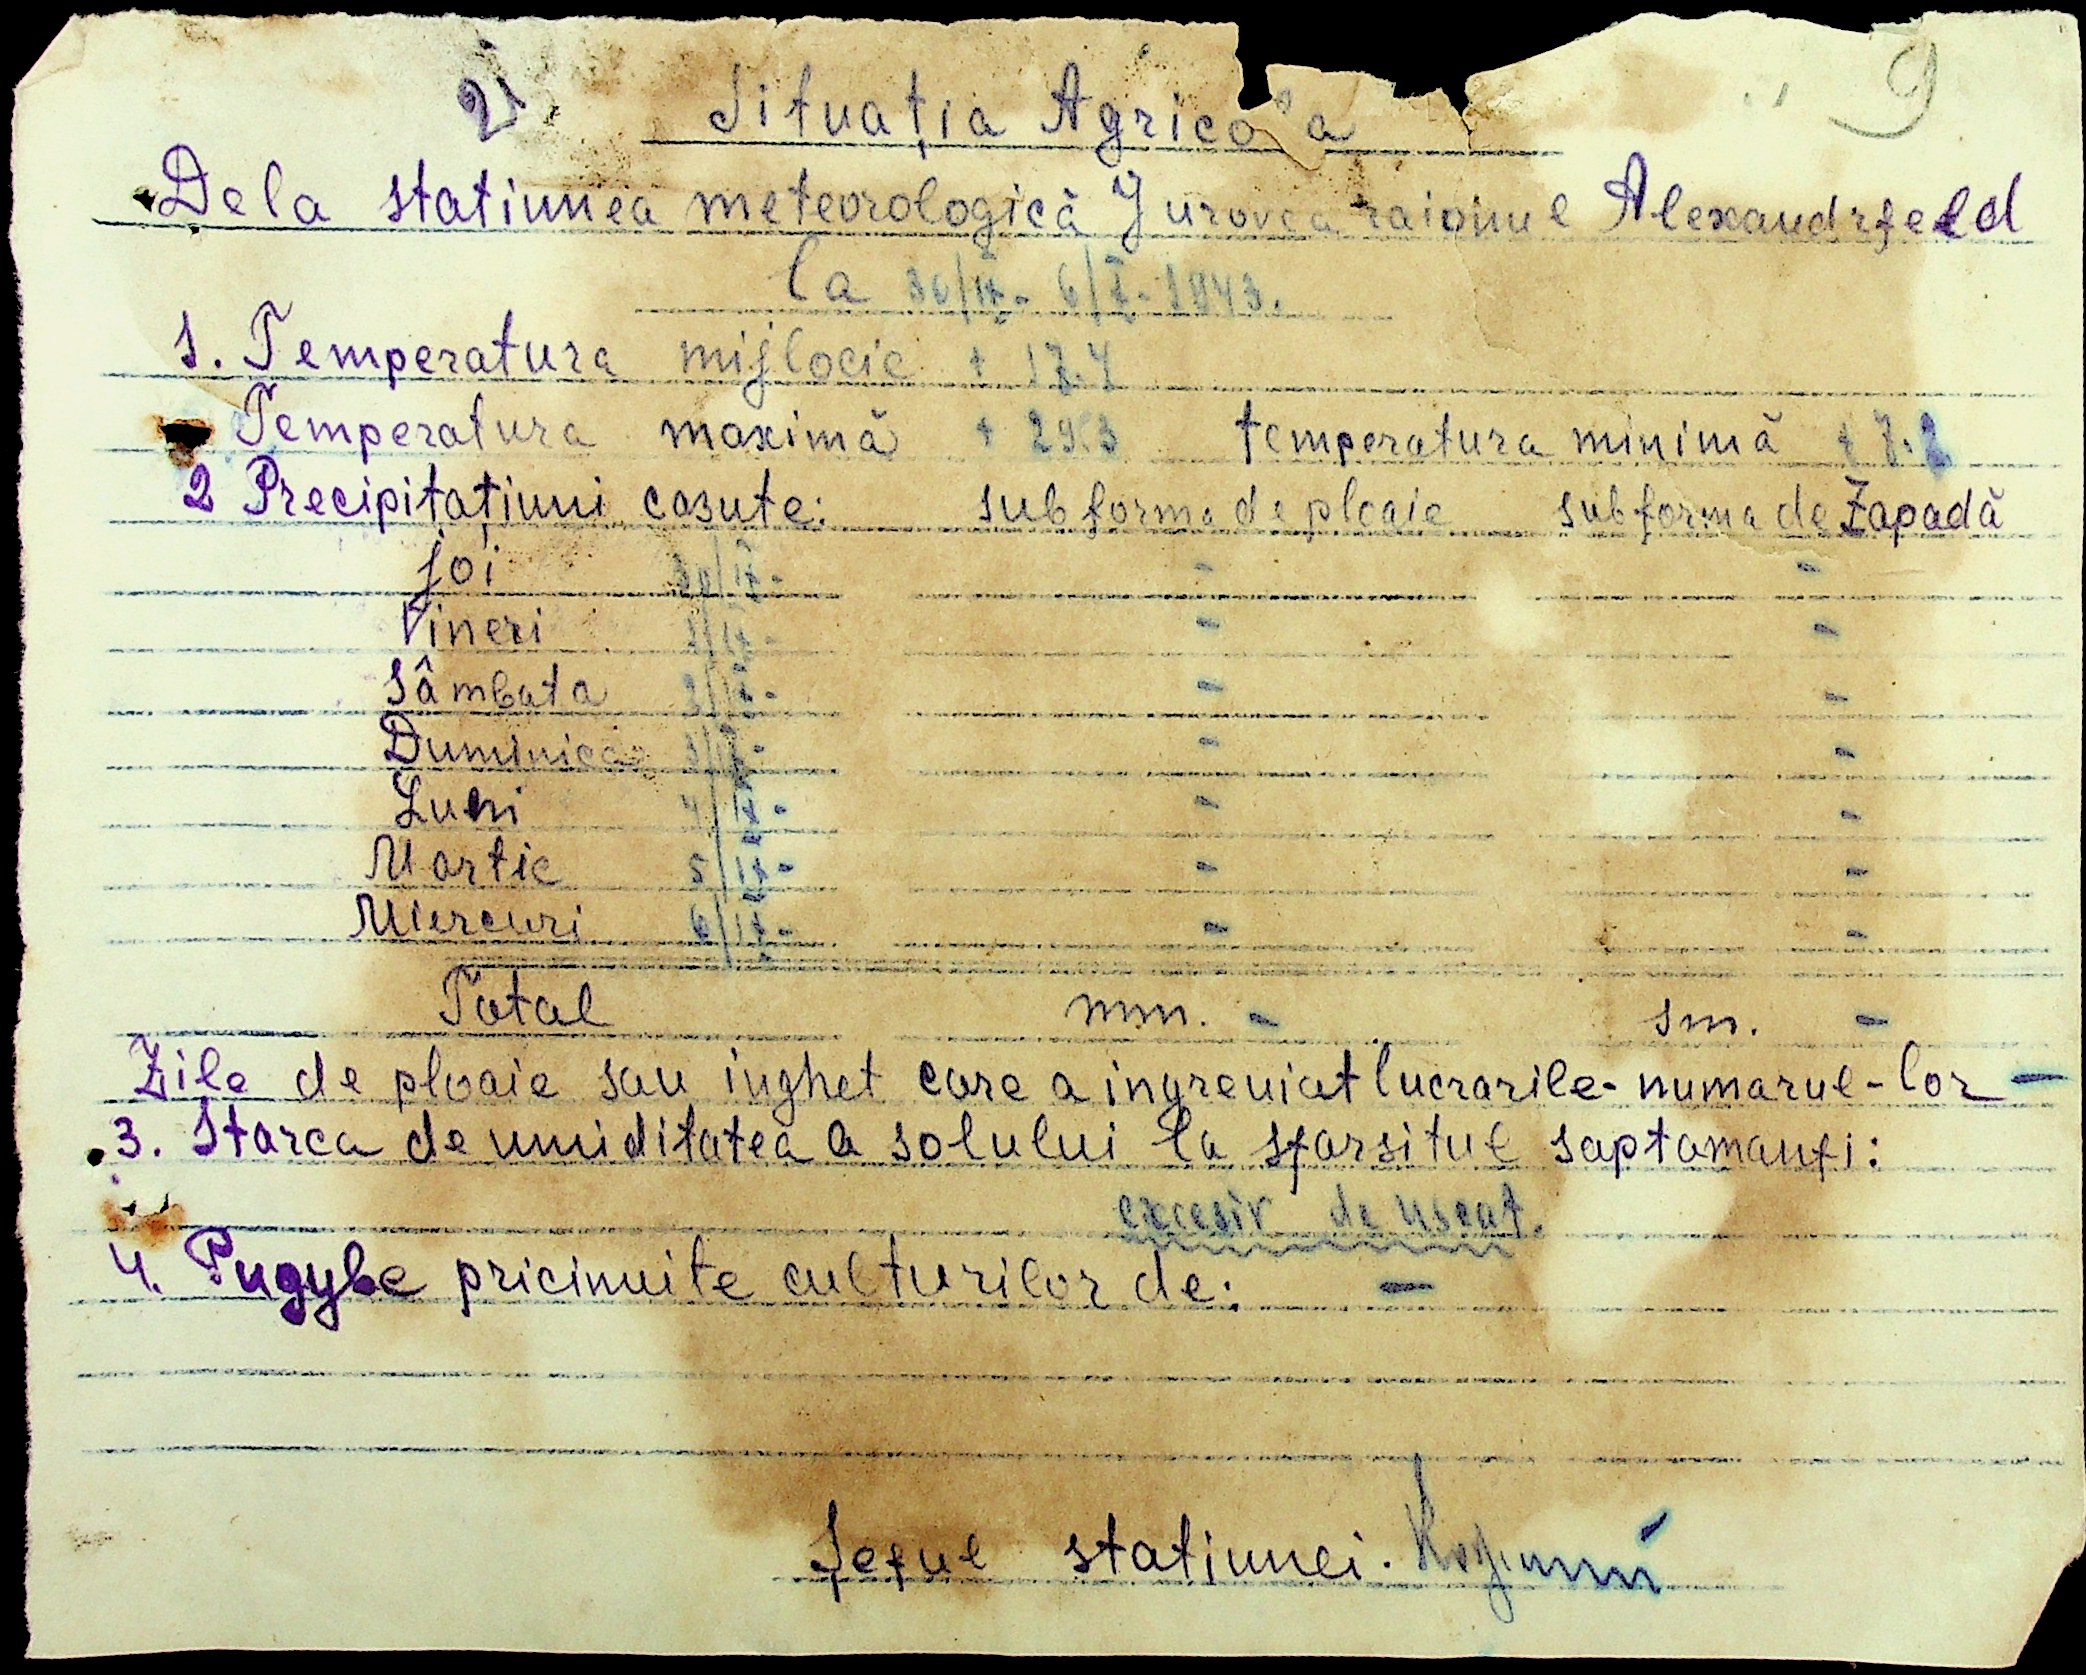 2. 9
Situația Agricola
Dela statiunea meteorologică Jurovca raionul Alexandrfeld
la 30/IX - 6/X - 1943.
1. Temperatura mijlocie + 17.4
Temperatura maximă + 29.3 temperatura minimă + 7.2
2 Precipitațiuni casute: sub forma de ploaie sub forma de Zapadă
joi 30/IX - - -
Vineri 1/IX - - -
Sâmbata 2/IX - - -
Duminica 3/X - - -
Luni 4/IX - - -
Martie 5/IX - - -
Miercuri 6/IX - - -
Total mm. - sm. -
Zile de ploaie sau inghet care a ingreuiat lucrarile - numarul - lor -
3. Starca de umiditatea a solului la sfarsitul saptamanfi:
excesiv de uscat.
4. Pugybe pricinuite culturilor de: -
Șeful statiunei.